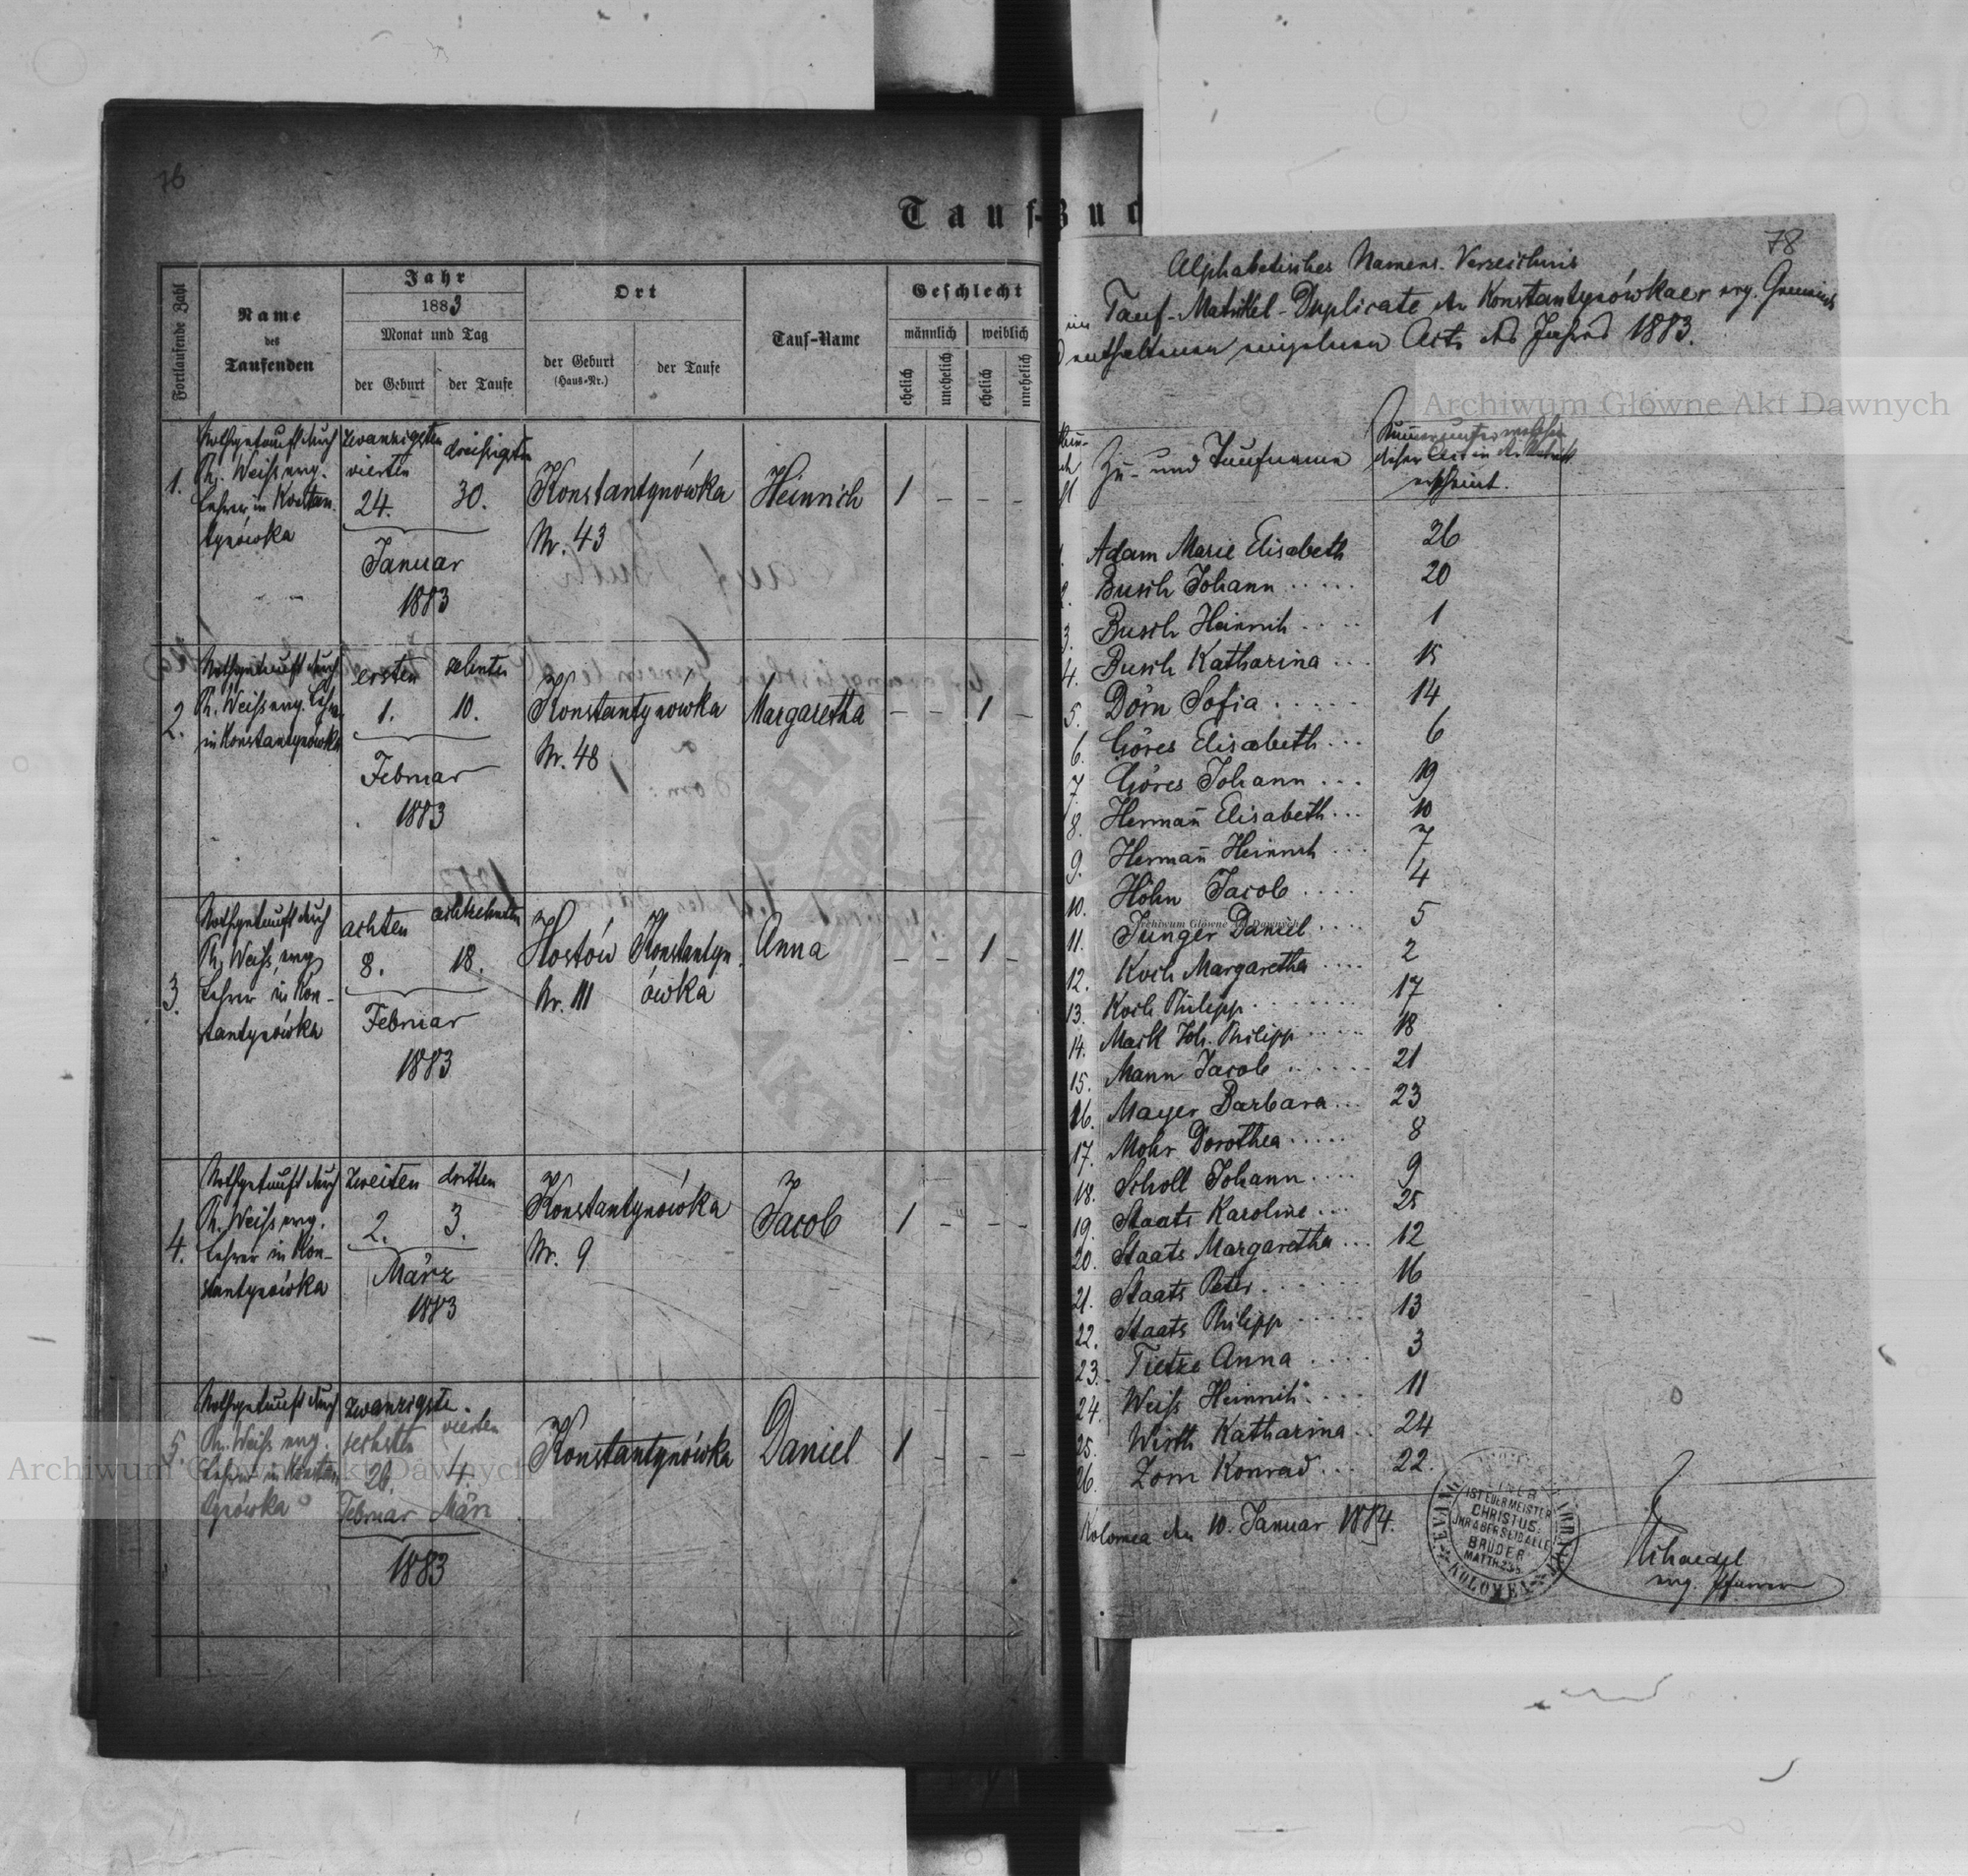 76
Tauf-Buc
Fortlaufende Zahl
Name
des
Taufenden
Jahr
1883
Monat und Tag
der Geburt
der Taufe
Ort
der Geburt
(Haus-Nr.)
der Taufe
Tauf-Name
Geschlecht
männlich
weiblich
ehelich
unehelich
ehelich
unehelich
1.
Nothgetauft durch
Ph. Weiss evg.
Lehrer in Konstan-
tynówka
zwanzigsten
vierten
24.
dreißigsten
30.
Januar
1883
Konstantynówka
Nr. 43
Heinrich
1 – – –
2.
Nothgetauft durch
Ph. Weiss evg. Lehrer
in Konstantynówka
ersten
1.
zehnten
10.
Februar
1883
Konstantynówka
Nr. 48
Margaretha
– – 1 –
3.
Nothgetauft durch
Ph. Weiss, evg.
Lehrer in Kon-
stantynówka
achten
8.
achtzehnten
18.
Februar
1883
Hostów
Nr. 111
Konstantyn-
ówka
Anna
– – 1 –
4.
Nothgetauft durch
Ph. Weiss evg.
Lehrer in Kon-
stantynówka
zweiten
2.
dritten
3.
März
1883
Konstantynówka
Nr. 9
Jacob
1 – – –
5.
Nothgetauft durch
Ph. Weiss evg.
Lehrer in Konstan
tynówka
zwanzigste
sechsten
26.
Februar
vierten
4.
März
1883
Konstantynówka
Daniel
1 – – –
78
Alphabetisches Namens-Verzeichnis
im Tauf-Matrikel-Duplicate der Konstantynówkaer evg. Gemeinde
enthaltenen einzelnen Acte des Jahres 1883.
Zu- und Taufname
Nummer unter welcher
dieser Act in der Matrik
erscheint.
1. Adam Marie Elisabeth 26
2. Busch Johann ..... 20
3. Busch Heinrich .... 1
4. Busch Katharina ... 15
5. Dörn Sofia ..... 14
6. Göres Elisabeth ... 6
7. Göres Johann ... 19
8. Hermañ Elisabeth ... 10
9. Hermañ Heinrich ... 7
10. Höhn Jacob .... 4
11. Junger Daniel .... 5
12. Koch Margaretha .... 2
13. Koch Philipp ....... 17
14. Mark Joh. Philipp ..... 18
15. Mann Jacob ...... 21
16. Mayer Barbara ... 23
17. Mohr Dorothea ..... 8
18. Scholl Johann .... 9
19. Staats Karoline ... 25
20. Staats Margaretha ... 12
21. Staats Peter ...... 16
22. Staats Philipp ..... 13
23. Tietze Anna .... 3
24. Weiss Heinrich .... 11
25. Wirth Katharina .. 24
26. Zorn Konrad ... 22.
Kolomea den 10. Januar 1884.
IST EUER MEISTER
CHRISTUS.
IHR ABER SEID ALLE
BRÜDER
MATTH. 23,8
KOLOMEA
evg. Pfarrer
Archiwum Główne Akt Dawnych
Archiwum Główne Akt Dawnych
Archiwum Główne Akt Dawnych